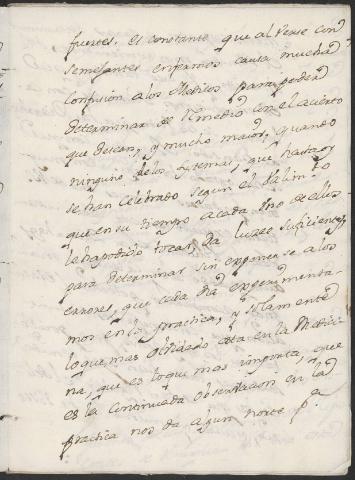 fuertes. es constante que al verse con
semejantes enfermos causa mucha
confusion a los Medicos para poder
determinar el remedio con el acierto
que desean, y mucho maior, quando
ninguno de los systemas, que hasta oy
se han celebrado segun el
que en su tiempo a cada uno de ellos
le ha podido tocar, da luzes suficientes
para determinar sin exponerse a los
errores, que cada dia experimenta-
mos en la practica, y solamente
lo que mas olvidado esta en la Medici-
na, que es lo que mas importa, que
es la continuada observacion en la
practica nos da algun norte pa.